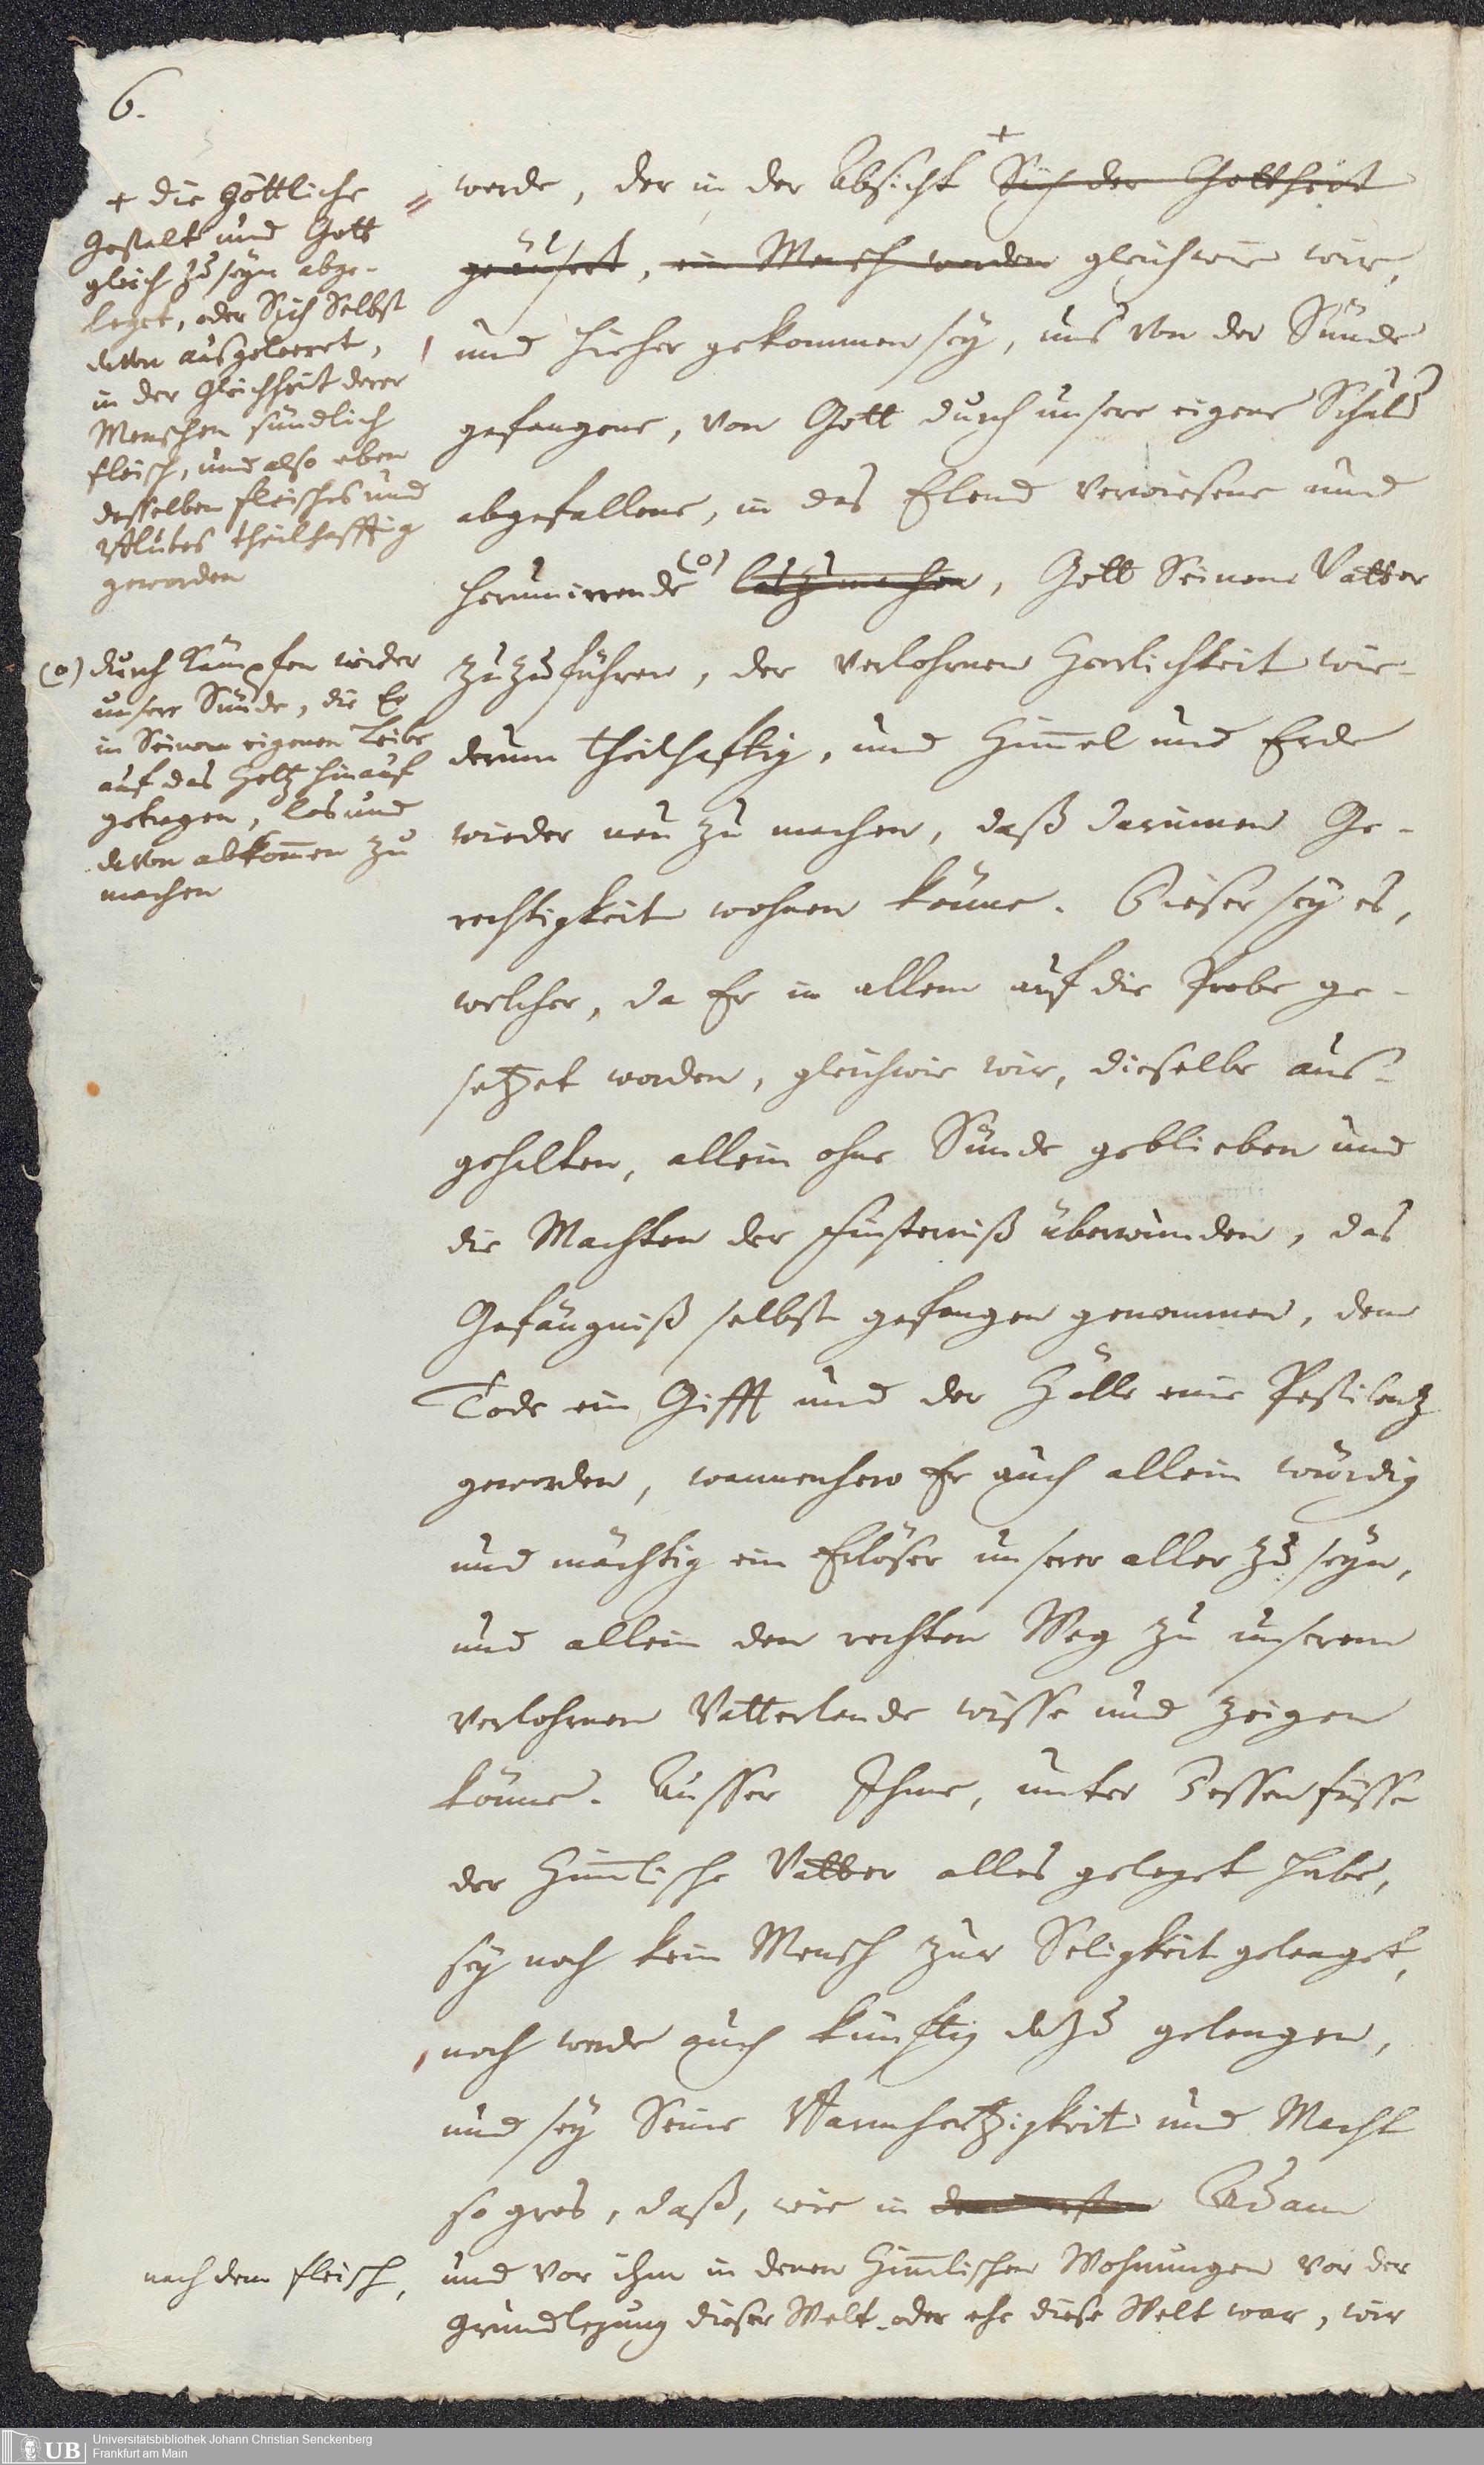 6.
+ die göttliche
Gestalt und Gott
gleich zu seyn abge-
leget, oder Sich Selbst
davon ausgeleeret,
in der Gleichheit derer
Menschen sündlich
Fleisch, und also eben
desselben Fleisches und
Blutes theilhafftig
geworden
(o) durch Kämpfen wider
unsere Sünde, die Er
in Seinem eigenen Leibe
auf das Holtz hinauf
getragen, los und
davon abkom̄en zu
machen
werde, der in der Absicht + Sich der Gottheit
geäusert, ein Mensch worden gleichwie wir,
und hieher gekommen sey, uns von der Sünde
gefangene, von Gott durch unsere eigene Schuld
abgefallene, in das Elend verwiesene und
herumirrende (o) los zu machen, Gott Seinem Vatter
zuzuführen, der verlohrnen Herrlichkeit wie-
derum theilhaftig, und Him̄el und Erde
wieder neu zu machen, daß darinnen Ge-
rechtigkeit wohnen könne. Dieser sey es,
welcher, da Er in allem auf die Probe ge-
setzet worden, gleichwie wir, dieselbe aus-
gehalten, allein ohne Sünde geblieben und
die Machten der Finsterniß überwunden, das
Gefängniß selbst gefangen genommen, dem
Tode ein Gifft und der Hölle eine Pestilentz
geworden, wannenhero Er auch allein würdig
und mächtig ein Erlöser unserer aller zu seyn,
und allein den rechten Weg zu unserem
verlohrnen Vatterlande wisse und zeigen
könne. Ausser Ihme, unter Dessen Füsse
der Him̄lische Vatter alles geleget habe,
sey noch kein Mensch zur Seligkeit gelanget,
noch werde auch künftig dazu gelangen,
und sey Seine Barmhertzigkeit und Macht
so gros, daß, wie in dem ersten Adam
nach dem Fleisch,
und vor ihm in denen Him̄lischen Wohnungen vor der
Grundlegung dieser Welt oder ehe diese Welt war, wir
UB
Universitätsbibliothek Johann Christian Senckenberg
Frankfurt am Main